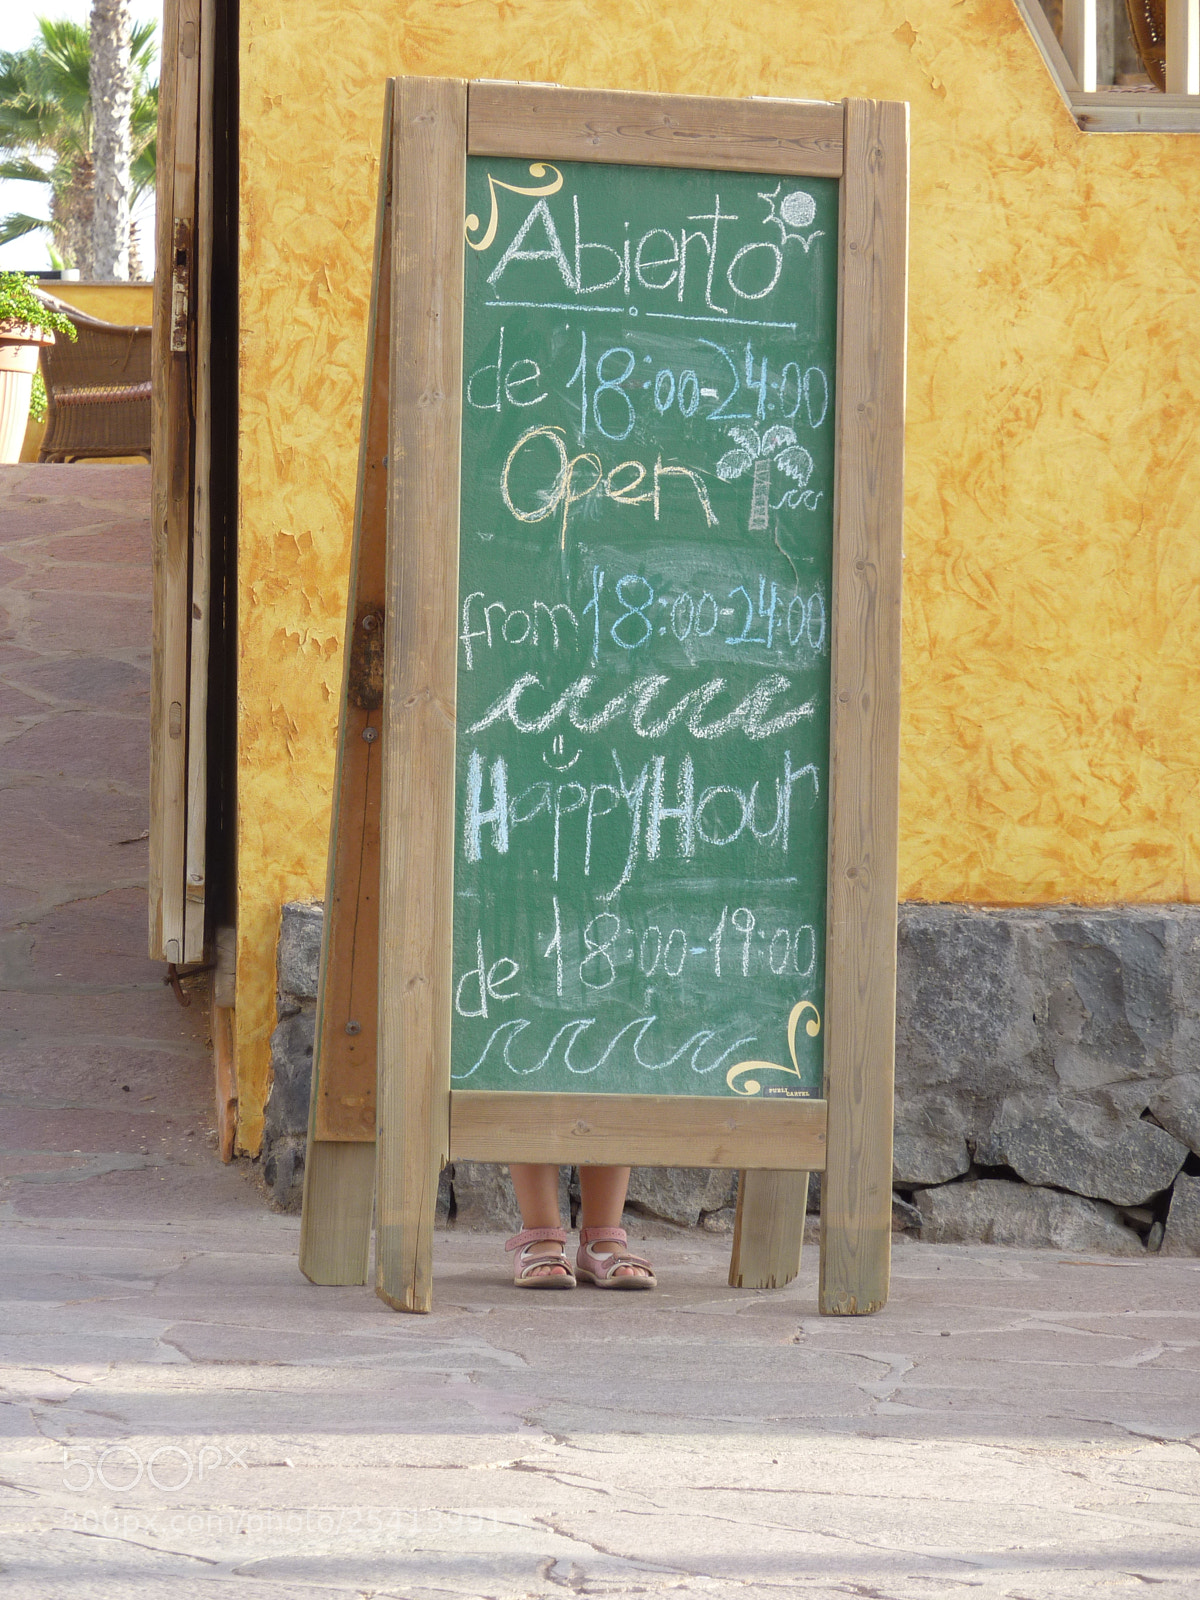 Abierto
de 18:00-24:00
Open
from 18:00-24:00
Happy Hour
de 18:00-19:00
PUBLI
CARTEL
500px